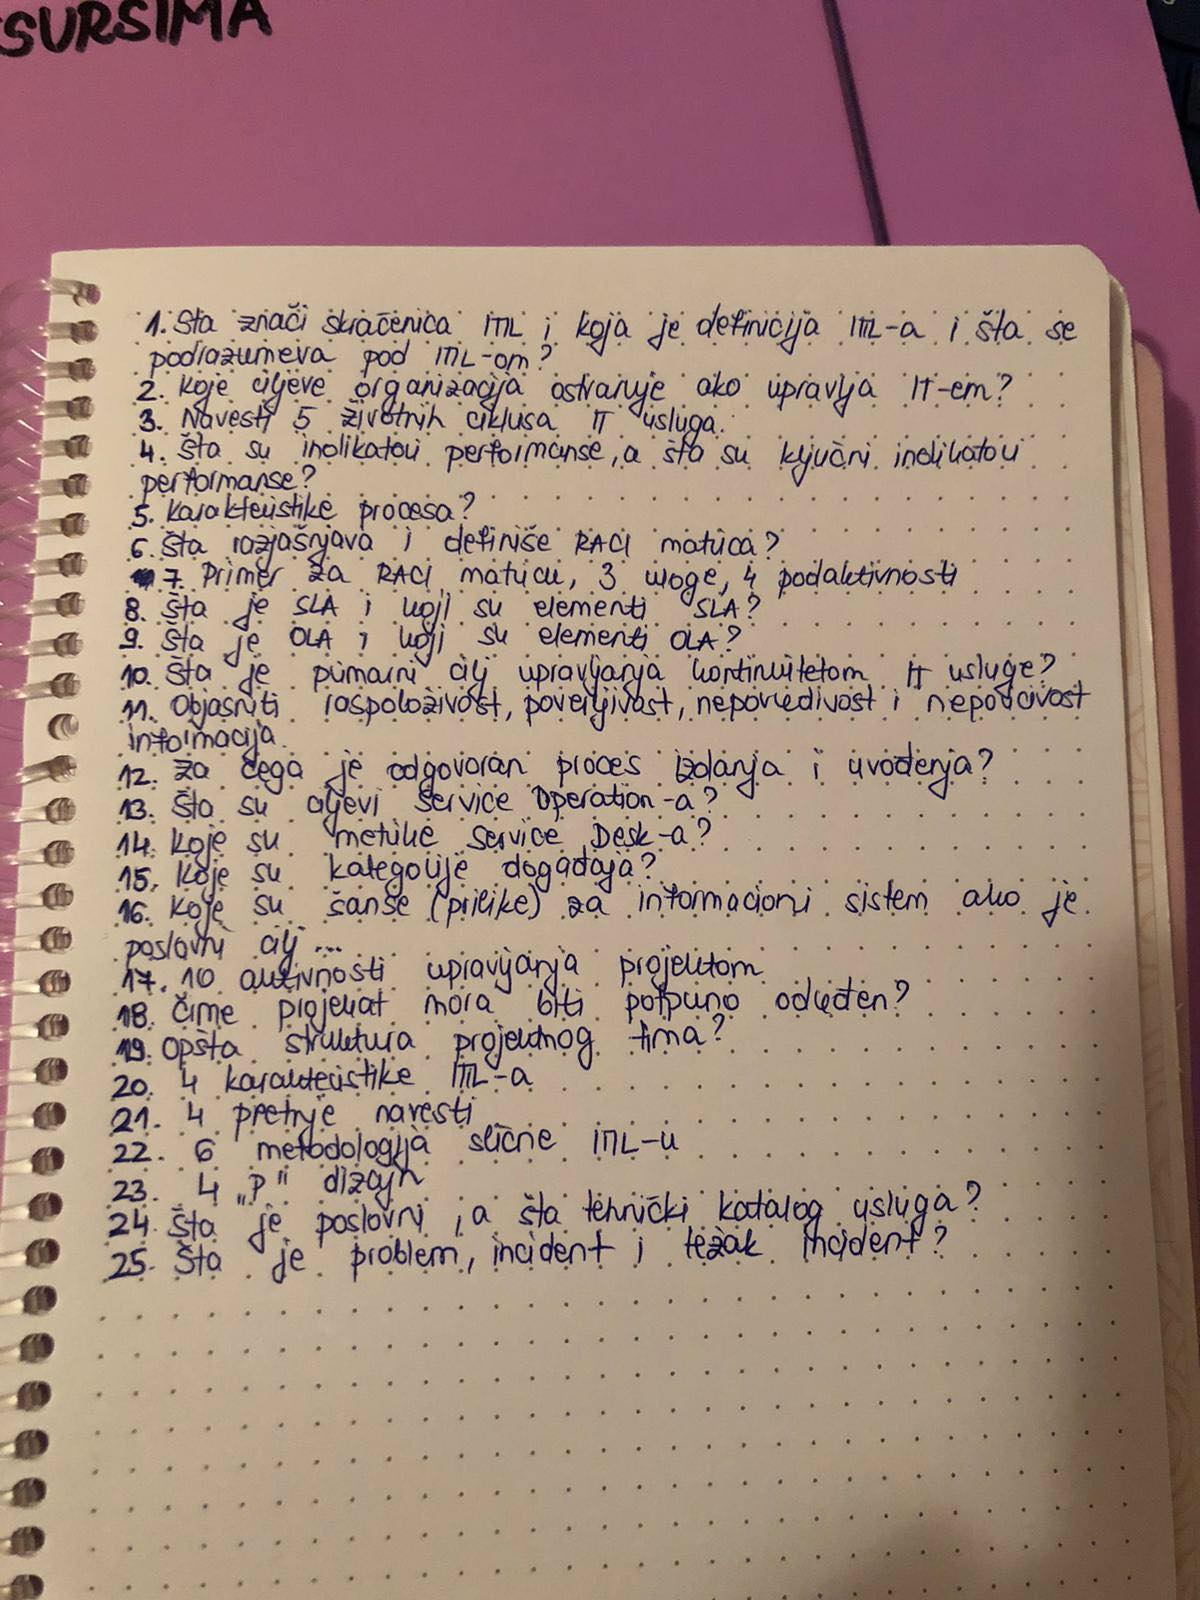 SURSIMA
1. Šta znači skraćenica ITIL i koja je definicija ITIL-a i šta se
podrazumeva pod ITIL-om?
2. Koje ciljeve organizacija ostvaruje ako upravlja IT-em?
3. Navesti 5 životnih ciklusa IT usluga.
4. Šta su indikatori performanse, a šta su ključni indikatori
performanse?
5. Karakteristike procesa?
6. Šta razjašnjava i definiše RACI matrica?
7. Primer za RACI matricu, 3 uloge, 4 podaktivnosti
8. Šta je SLA i koji su elementi SLA?
9. Šta je OLA i koji su elementi OLA?
10. Šta je primarni cilj upravljanja kontinuitetom IT usluge?
11. Objasniti raspoloživost, poverljivost, nepovredivost i neporecivost
informacija.
12. Za čega je odgovoran proces izdanja i uvođenja?
13. Šta su ciljevi Service Operation-a?
14. Koje su metrike Service Desk-a?
15. Koje su kategorije događaja?
16. Koje su šanse (prilike) za informacioni sistem ako je
poslovni cilj ...
17. 10 aktivnosti upravljanja projektom
18. Čime projekat mora biti potpuno određen?
19. Opšta struktura projektnog tima?
20. 4 karakteristike ITIL-a
21. 4 pretnje navesti
22. 6 metodologija slične ITIL-u
23. 4 „P" dizajn
24. Šta je poslovni, a šta tehnički katalog usluga?
25. Šta je problem, incident i težak incident?